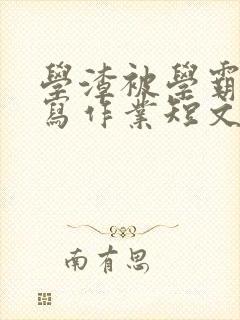 學渣被學霸
寫作業短文
南有思